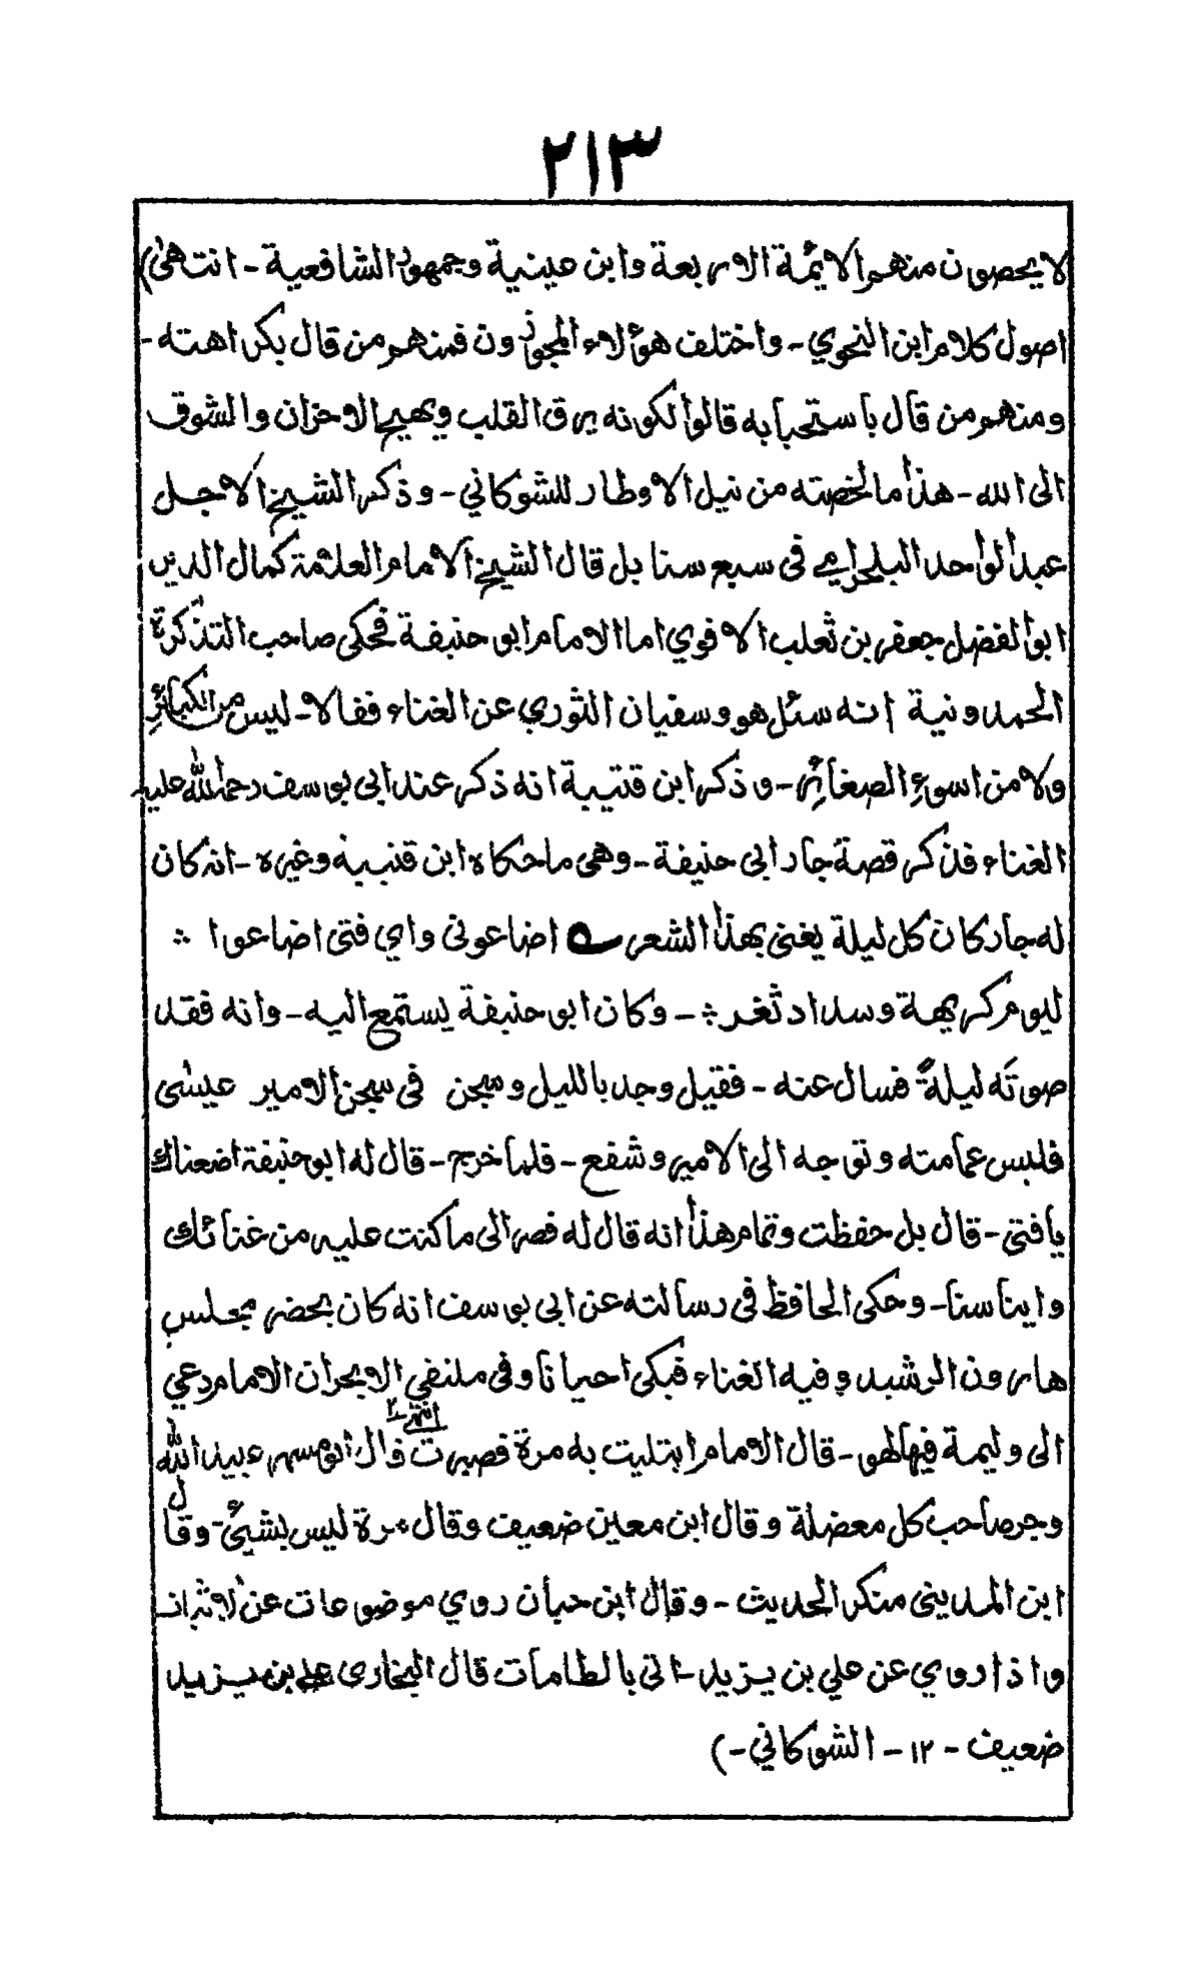 ٢١٣
لا يحصون منهم الائمة الاربعة وابن عينية وجمهور الشافعية - انتهى)
اصول كلام ابن النحوي - واختلف هؤلاء المجوزون فمنهم من قال بكراهته -
ومنهم من قال باستحبابه قالوا لكونه يرق القلب ويهيج الاحزان والشوق
الى الله - هذا ما لخصته من نيل الاوطار للشوكاني - وذكر الشيخ الاجل
عبد الواحد البلجرامي في سبع سنابل قال الشيخ الامام العلامة كمال الدين
ابو الفضل جعفر بن ثعلب الادفوي اما الامام ابو حنيفة فحكى صاحب التذكرة
الحمدونية انه سئل هو وسفيان الثوري عن الغناء فقالا - ليس من الكبائر
ولا من اسوء الصغائر - وذكر ابن قتيبة انه ذكر عند ابي يوسف رحمه الله عليه
الغناء فذكر قصة جار ابي حنيفة - وهي ما حكاه ابن قتيبة وغيره - انه كان
له جار كان كل ليلة يغني بهذا الشعر ؎ اضاعوني واي فتى اضاعوا ؞
ليوم كريهة وسداد ثغر ؞ - وكان ابو حنيفة يستمع اليه - وانه فقد
صوته ليلةً فسال عنه - فقيل وجد بالليل وسجن في سجن الامير عيسى
فلبس عمامته وتوجه الى الامير وشفع - فلما خرج - قال له ابو حنيفة اضعناك
يا فتى - قال بل حفظت وتمام هذا انه قال له فصر الى ما كنت عليه من غنائك
وايناسنا - وحكى الحافظ في رسالته عن ابي يوسف انه كان يحضر مجلس
هارون الرشيد وفيه الغناء فبكى احيانا وفي ملتقي الابحران الامام دعي
الى وليمة فيها لهو - قال الامام ابتليت به مرة فصبرت انتهى ٢ قال ابو مسهر عبيد الله
وجر صاحب كل معضلة وقال ابن معين ضعيف وقال مرة ليس بشيئ - وقال
ابن المديني منكر الحديث - وقال ابن حبان روي موضوعات عن الاثبات
واذا روي عن علي بن يزيد - اتى بالطامات قال البخاري علي بن يزيد
ضعيف - ١٢ - الشوكاني -)